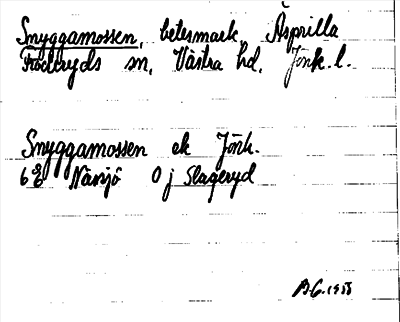 Snyggamossen, betesmark, Äsprilla
Frödinge sn, Västra hd, Jönk. l.
Snyggamossen ek Jönk.
6E Nässjö 0 j Slageryd
B.G. 1955